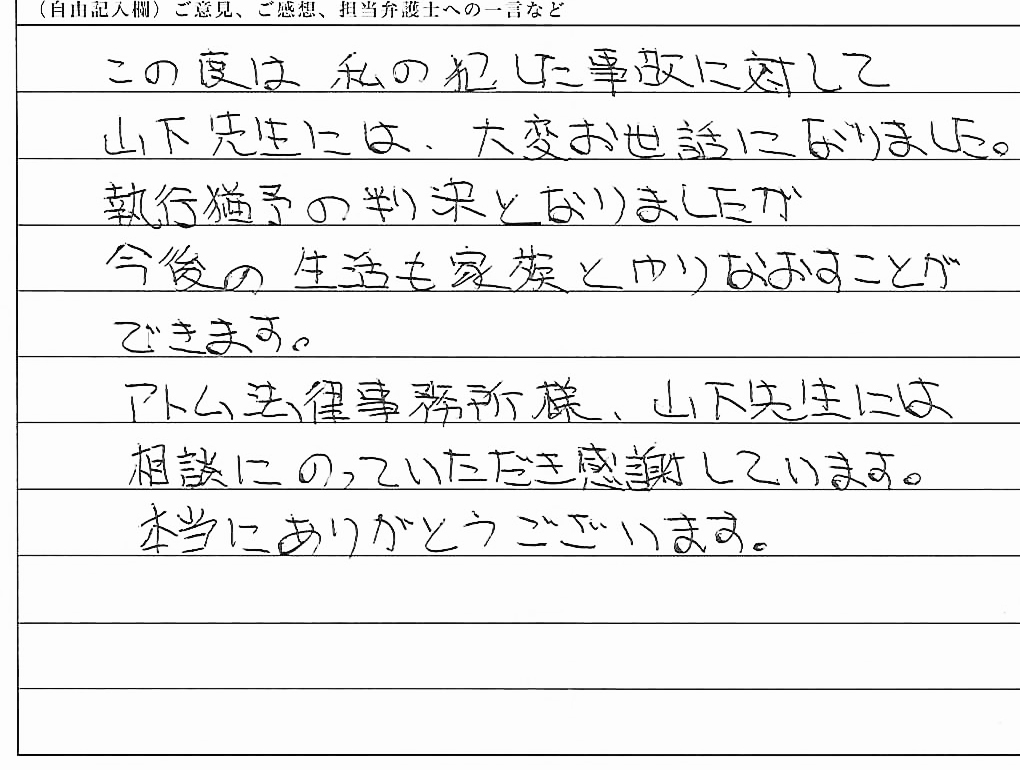 （自由記入欄）ご意見、ご感想、担当弁護士への一言など
この度は 私の犯した事故に対して
山下先生には、大変お世話になりました。
執行猶予の判決となりましたが
今後の生活も家族とやりなおすことが
できます。
アトム法律事務所様、山下先生には
相談にのっていただき感謝しています。
本当にありがとうございます。